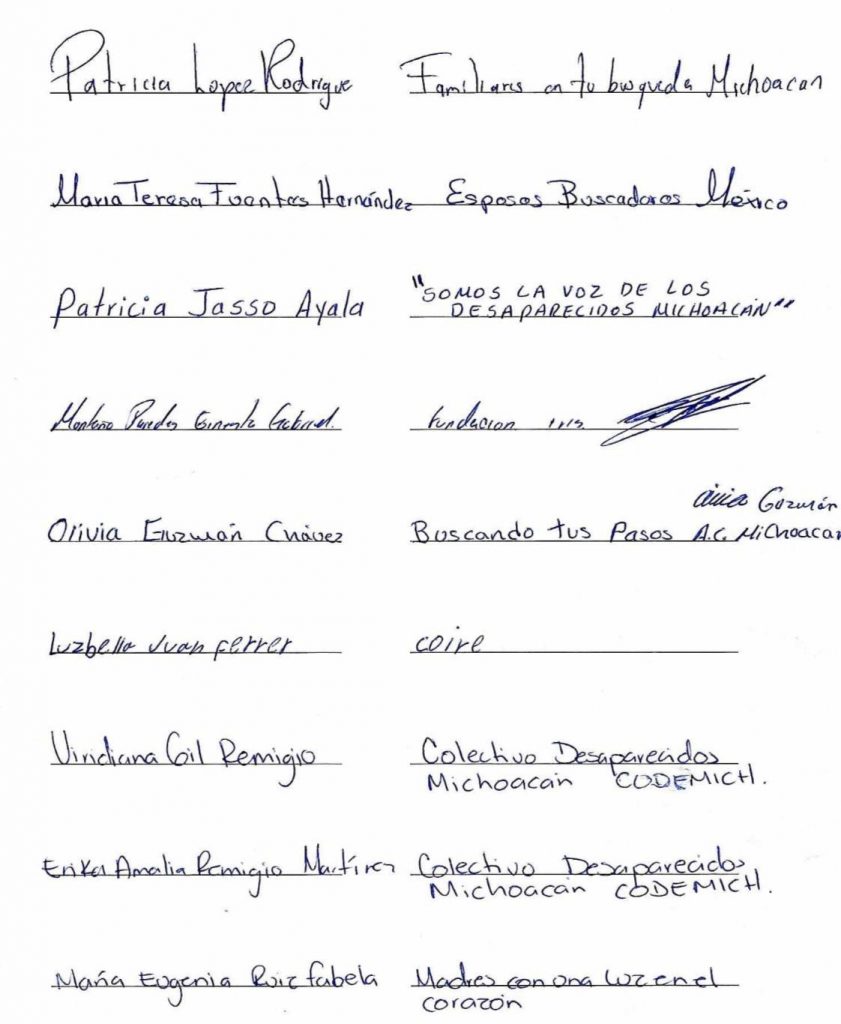 Patricia Lopez Rodrigue Familiares en tu busqueda Michoacan
Maria Teresa Fuentes Hernández Esposas Buscadoras México
Patricia Jasso Ayala "SOMOS LA VOZ DE LOS
DESAPARECIDOS MICHOACÁN"
Montaño Paredes Gabriel. fundacion
Guzmán
Olivia Guzmán Chávez Buscando tus Pasos A.C. Michoacan
Luzbella Juan ferrer coire
Viridiana Gil Remigio Colectivo Desaparecidos
Michoacán CODEMICH.
Erika Amalia Remigio Martínez Colectivo Desaparecidos
Michoacán CODEMICH.
María Eugenia Ruiz fabela Madres con una luz en el
corazón